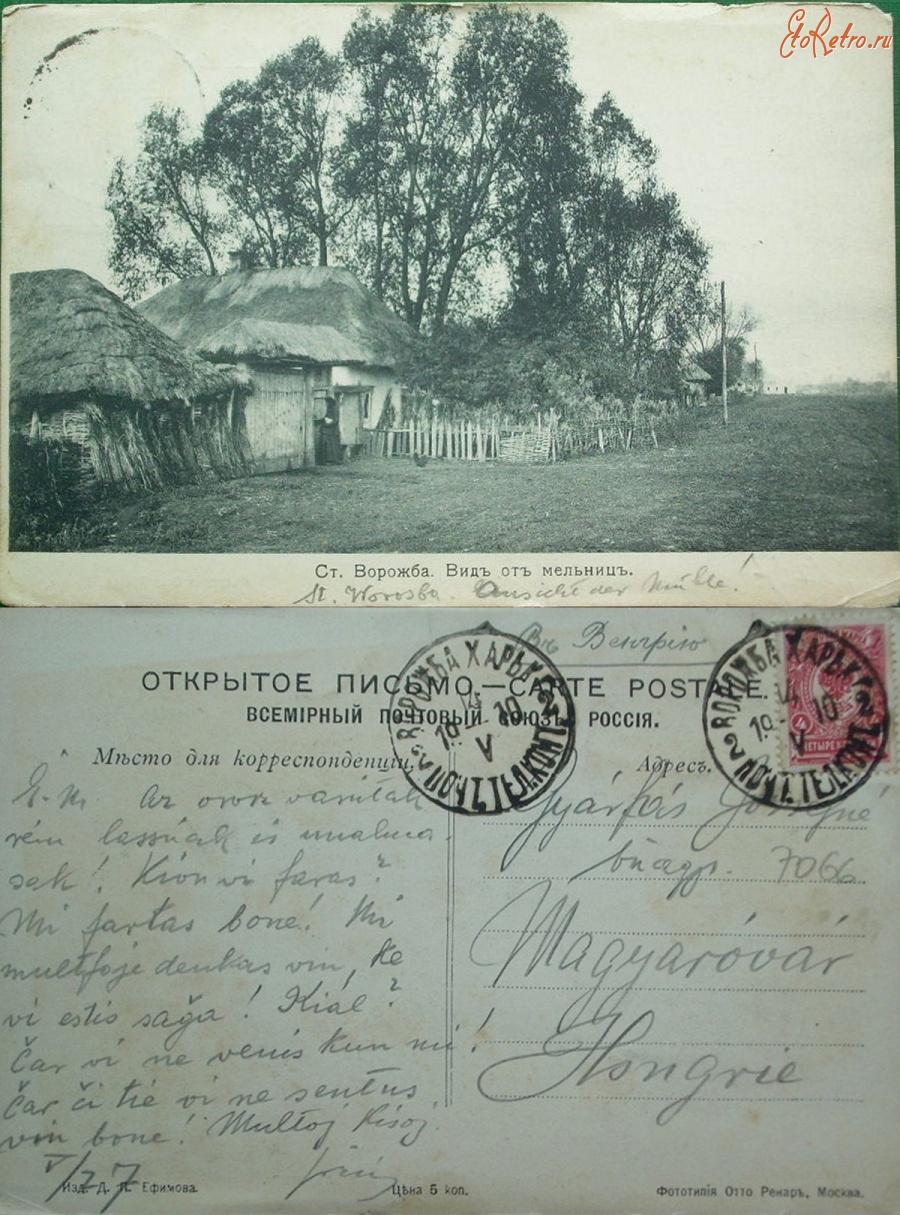 EtoRetro.ru
Ст. Ворожба. Видъ отъ мельницъ.
St. Worosba. Ansicht der Mühle!
Въ Венгрію
ОТКРЫТОЕ ПИСЬМО.—CARTE POSTALE.
ВСЕМІРНЫЙ ПОЧТОВЫЙ СОЮЗЪ. РОССІЯ.
Мѣсто для корреспонденціи.
Адресъ.
ВОРОЖБА ХАРЬК. 2
14
19 V 10
2 ПОЧТ. ТЕЛ. КОНТ.
ВОРОЖБА ХАРЬК. 2
14
19 V 10
2 ПОЧТ. ТЕЛ. КОНТ.
4
ЧЕТЫРЕ КОП.
rém lassúak és
sak! Kion vi faras?
Mi fartas bone! Mi
multfoje denkas vin, ke
vi estis saĝa! Kial?
Ĉar vi ne venis kun mi!
Ĉar ĉi tie vi ne sentus
vin bone! Multoj kisoj.
V/27
Gyárfás
7066
Magyaróvár
Hongrie
Изд. Д. П. Ефимова.
Цѣна 5 коп.
Фототипія Отто Ренаръ, Москва.